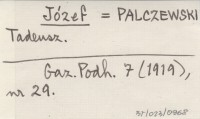 Józef = PALCZEWSKI
Tadeusz.
Gaz. Podh. 7 (1919),
nr 29.